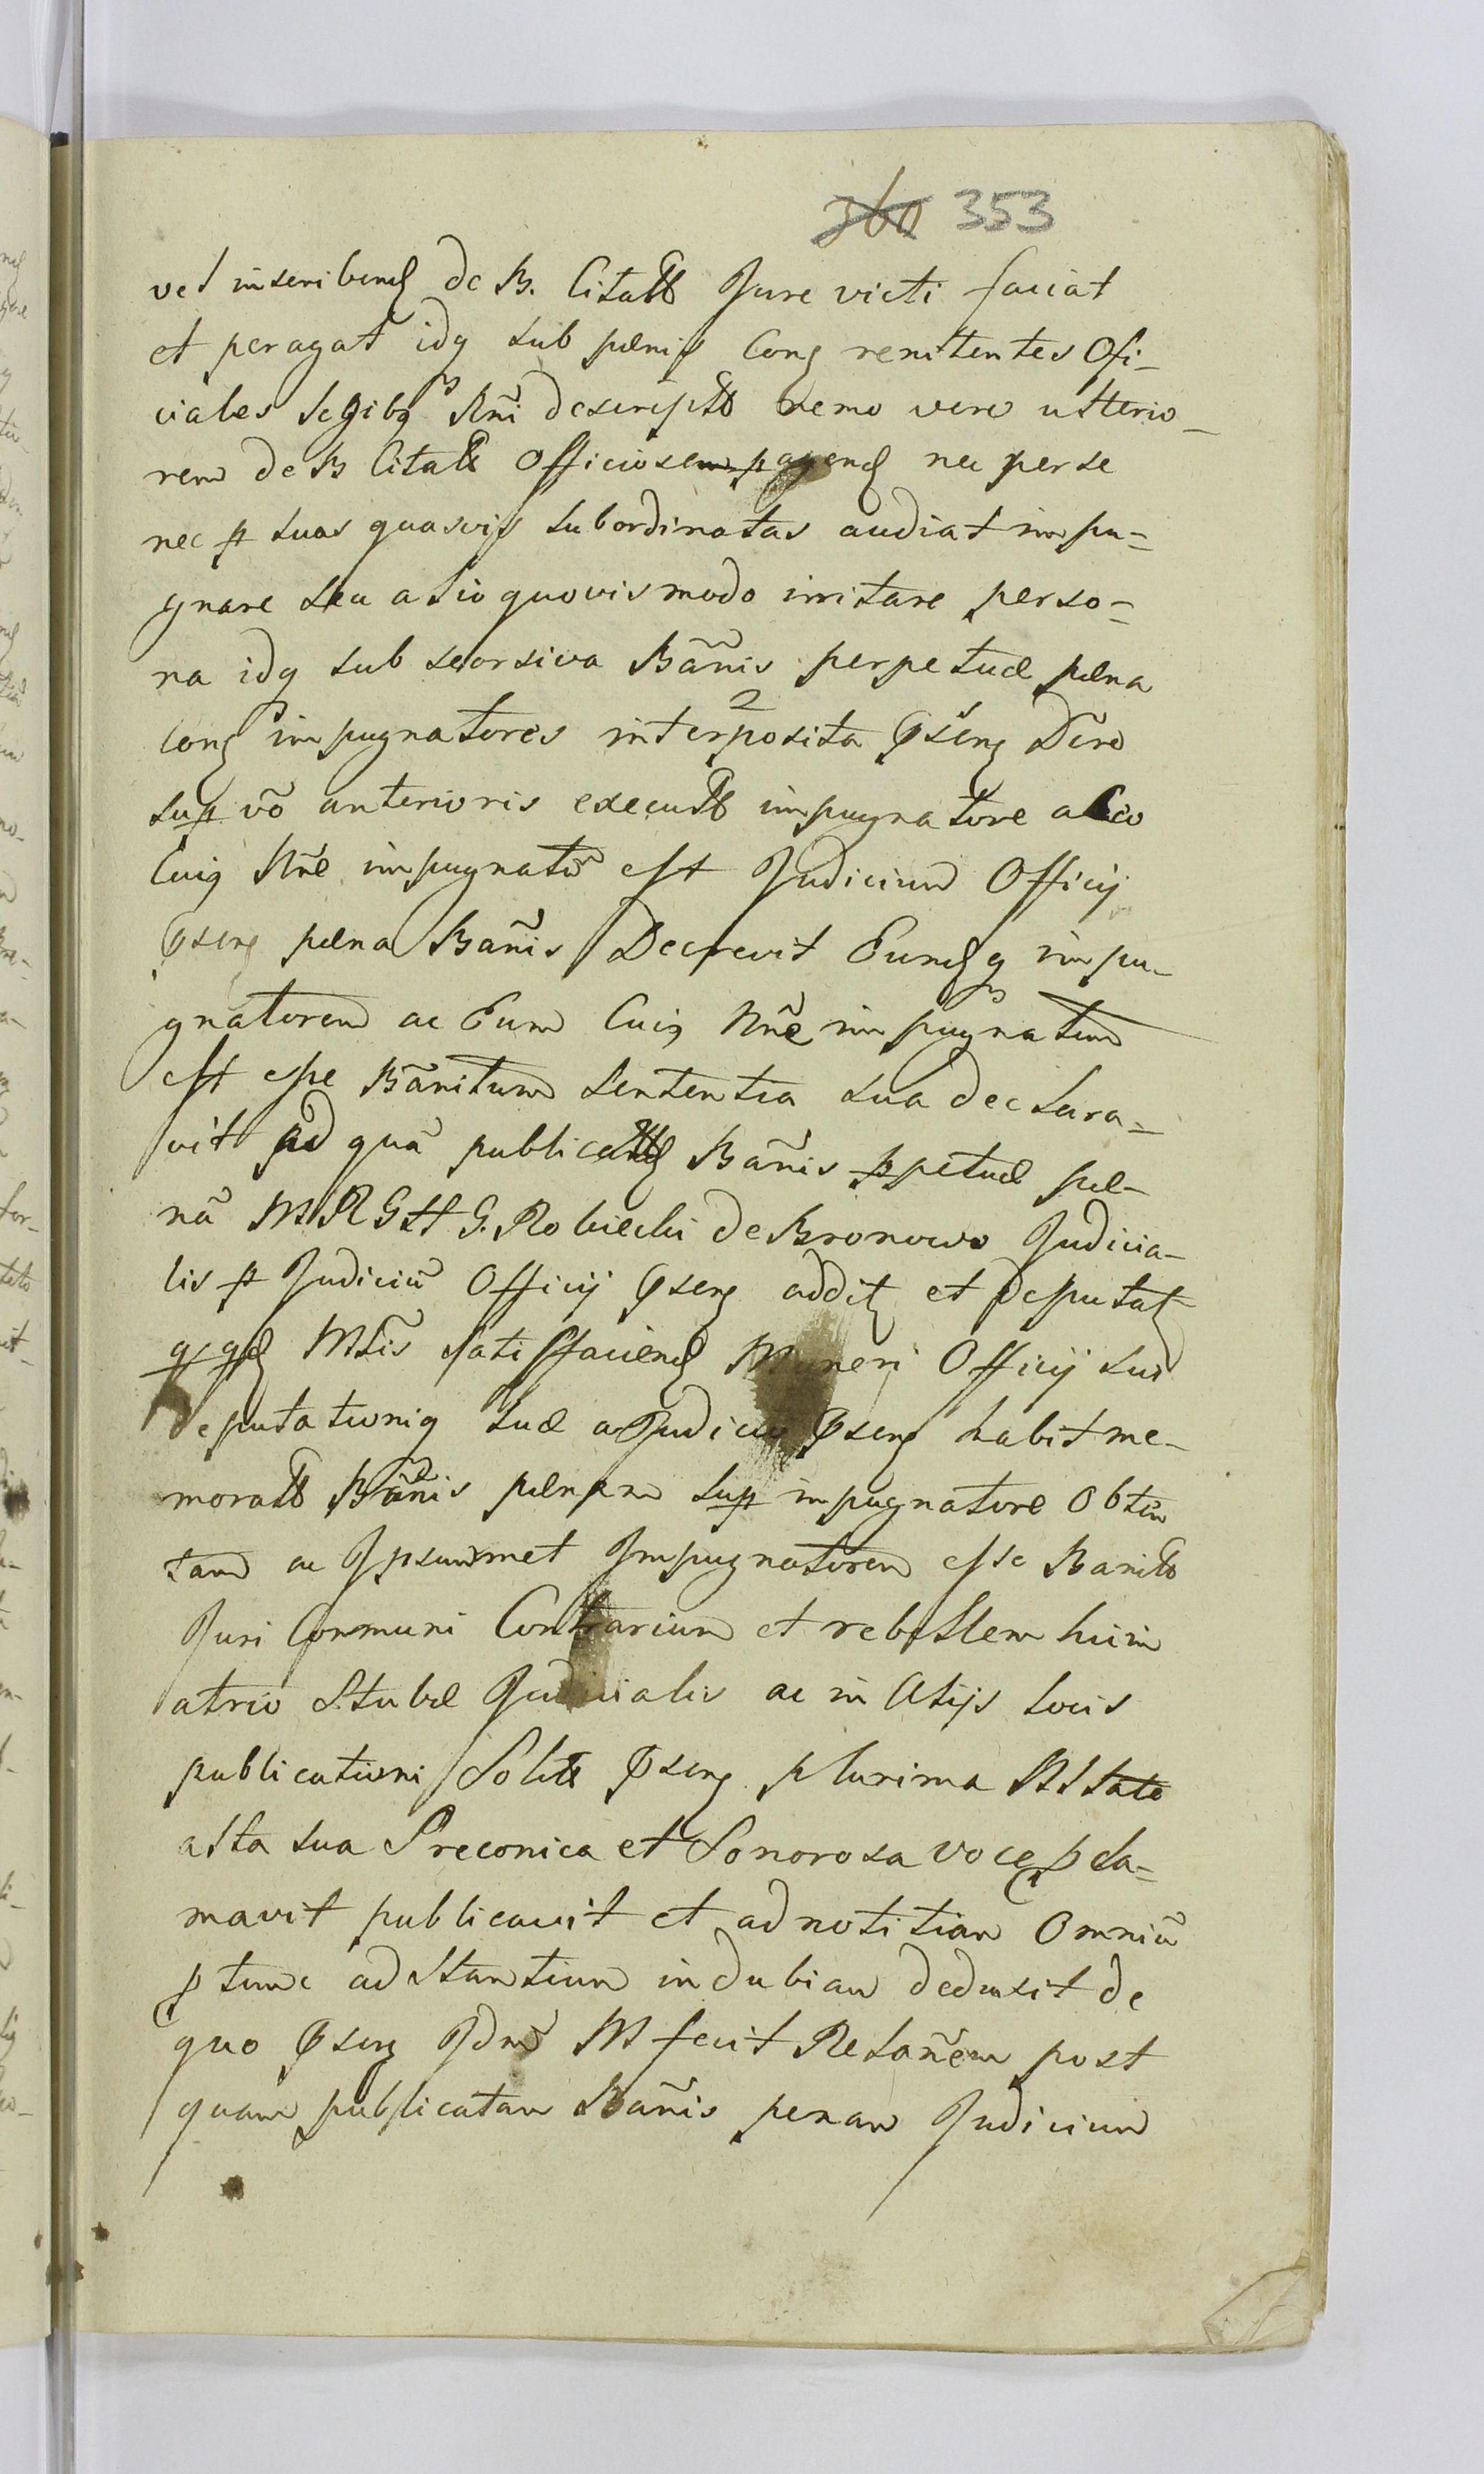 360 353
vel inscribend de B. Citatt Jure victi faciat
et peragat idq sub pœnis Conz renitentes Offi-
ciales legibq Rñi descriptt nemo vero ulterio-
rem de B Citatt Officiosem pagend nec per se
nec p suas quasvis subordinatas audiat impu-
gnare seu alio quovis modo irritare perso-
na idq sub seorsiva Bãnis perpetuæ pœna
Conz impugnatores interposita
sup võ anterioris executt impugnatore a
Cuiq Nñe impugnatũ est Judicium Officij
pœna Bañis Decrevit Eundq impu-
gnatorem ac Eum Cuiq Nñe impugnatum
est esse Bãnitum Sententia sua declara-
vit ad quã publicand Bañis ppetuæ pœ-
nã MRGHG. Robiecki de Bronowo Judicia-
lis p Judiciũ Officij addit et deputat
Mtis satisfaciend Muneri Officij sui
deputationiq suæ a Judicij habit me-
moratt Bãnis pœnam sup impugnatore Obten
tam ac Ipsummet Impugnatorem esse Banitt
Juri Communi Contrarium et rebellem hic in
atrio Stubæ Judicialis ac in Alijs locis
publicationi Solitt plurima
alta sua Preconica et Sonorosa voce pcla-
mavit publicavit et ad notitiam Omniũ
ptunc adstantium indubiam deduxit de
quo Idm M fecit Relañem post
quam publicatam Bañis penam Judicium